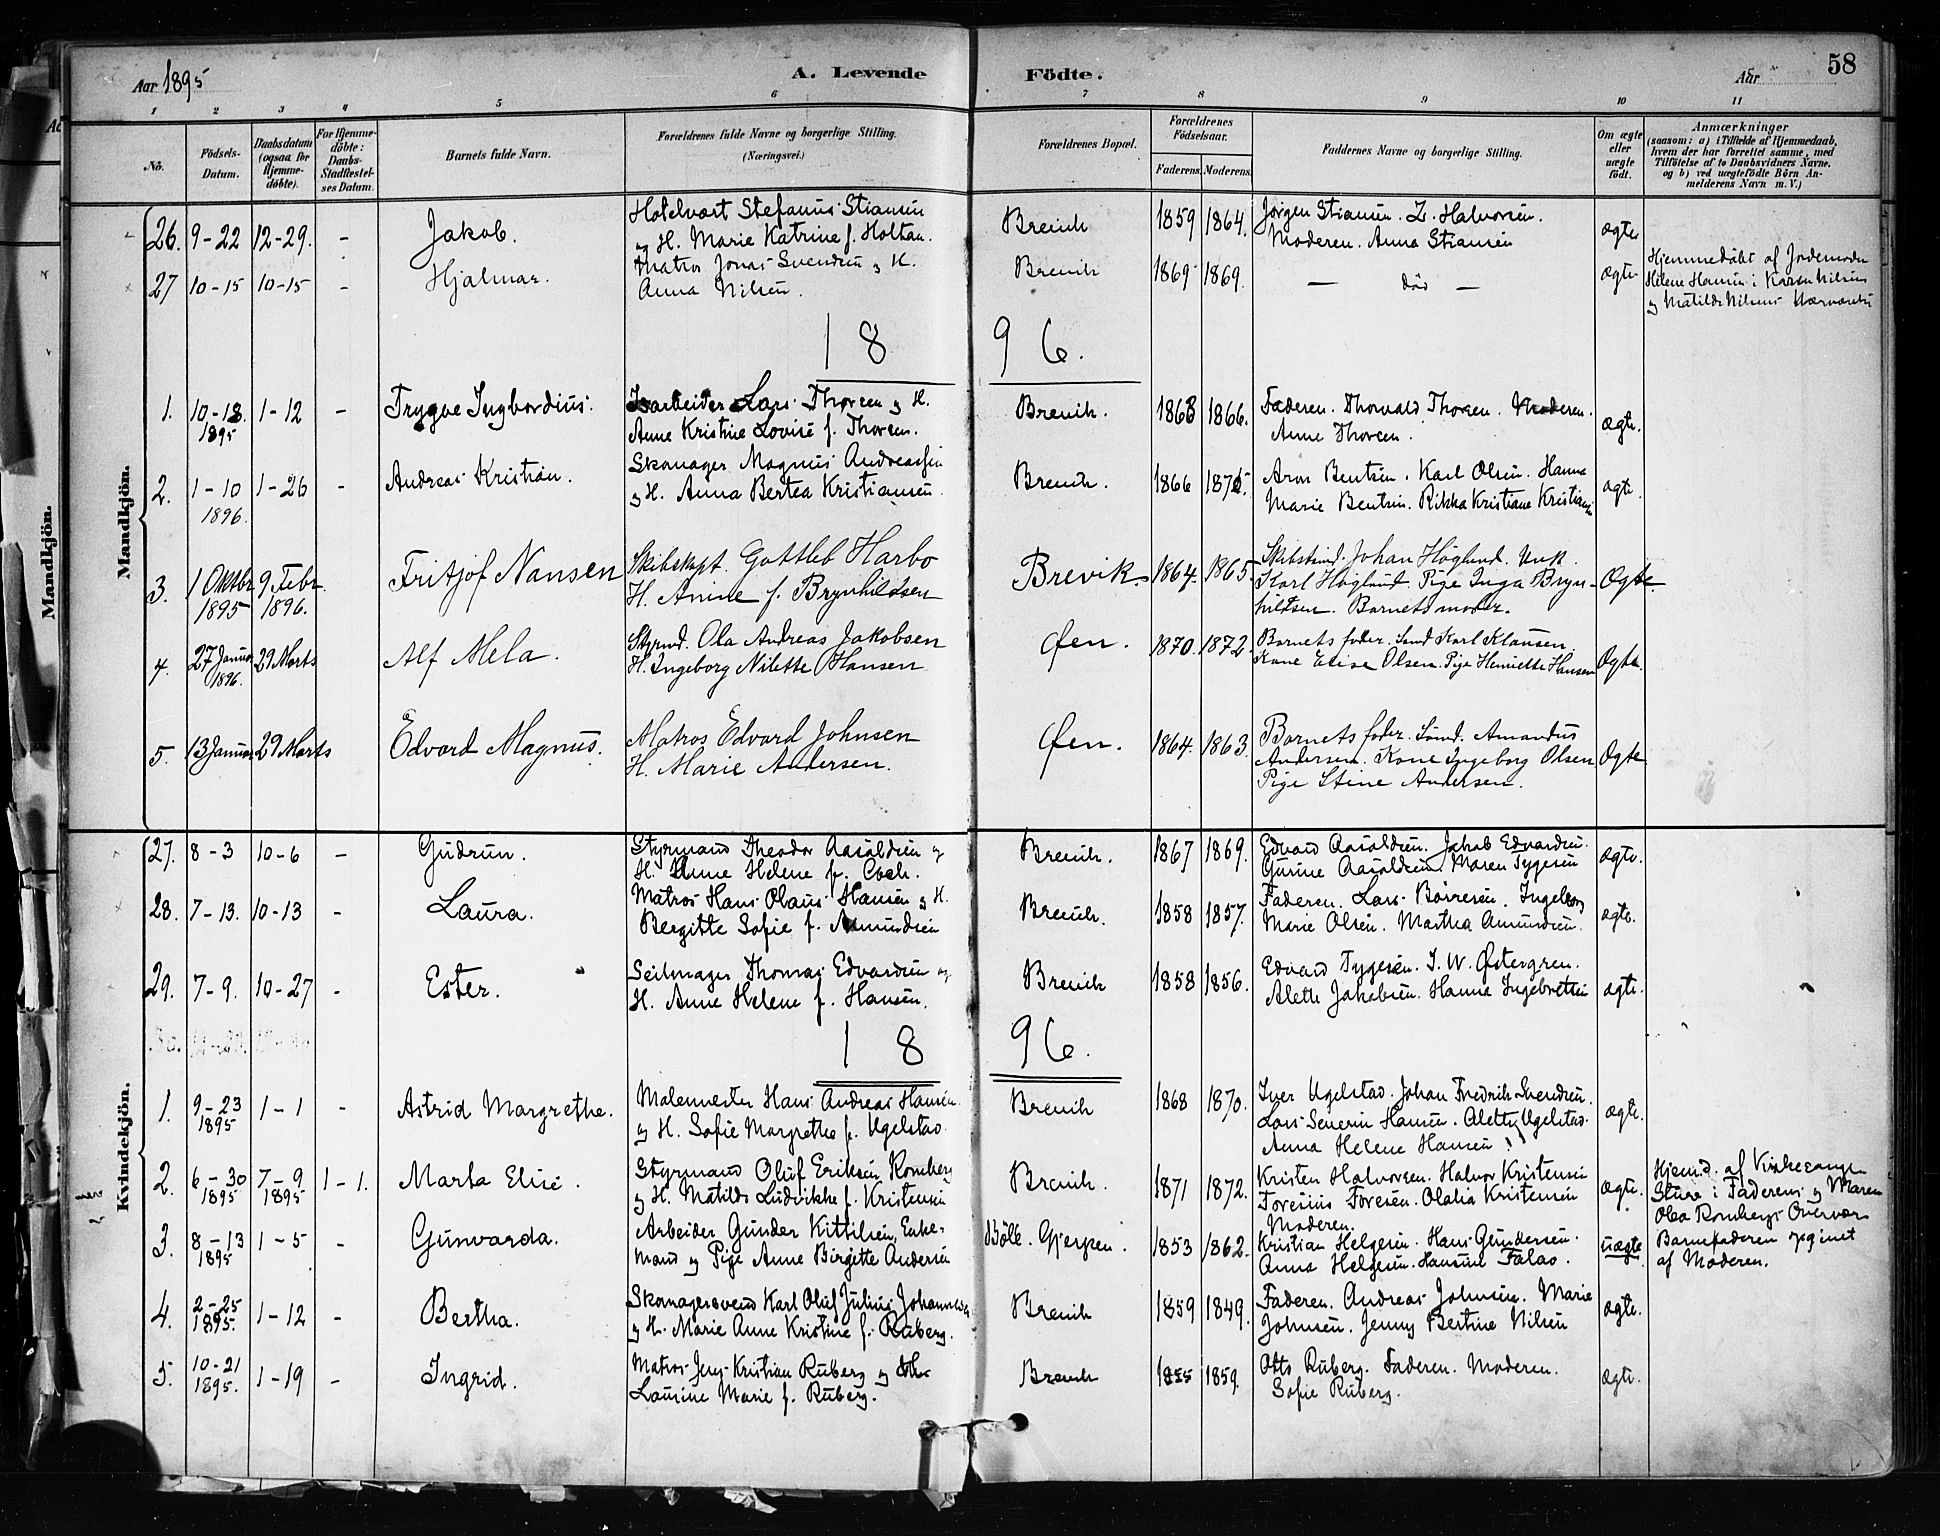 Aar 1895
A. Levende Födte.
Aar
58
1 2 3 4 5 6 7 8 9 10 11
No.
Födsels-
Datum.
Daabsdatum
(ogsaa for
Hjemme-
döbte).
For Hjemme-
döbte:
Daabs-
Stadfæstel-
ses Datum.
Barnets fulde Navn.
Forældrenes fulde Navne og borgerlige Stilling.
(Næringsvei.)
Forældrenes Bopæl.
Forældrenes
Födselsaar.
Faderens. Moderens.
Faddernes Navne og borgerlige Stilling.
Om ægte
eller
uægte
födt.
Anmærkninger
(saasom: a) i Tilfælde af Hjemmedaab,
hvem der har forrettet samme, med
Tilföielse af to Daabsvidners Navne,
og b) ved uægtefödte Börn An-
melderens Navn m. V.)
Mandkjön.
Mandkjön.
26. 9-22 12-29. - Jakob.
Hotelvært Stefanus Stiansen
og H. Marie Katrine f. Holtan.
Brevik 1859 1864.
Jørgen Stiansen. L. Halvorsen.
Moderen. Anna Stiansen
ægte
27 10-15 10-15 - Hjalmar.
Matros Jonas Svendsen og H.
Anna Nilsen.
Brevik 1869 1869.
— død —
ægte
Hjemmedøbt af Jordemoder
Helene Hansen i Karen Nilsens
og Matilde Nilsens Nærværelse
1896.
1. 10-13 1895 1-12 - Trygve Ingbordius.
Isarbeider Lars Thorsen og H.
Anne Kristine Lovise f. Thorsen.
Brevik. 1868 1866.
Faderen. Thorvald Thorsen. Moderen.
Anne Thorsen.
ægte.
2. 1-10 1896. 1-26 - Andreas Kristian.
Skomager Magnus Andreassen
og H. Anna Bertea Kristiansen.
Brevik. 1866
Aron Bentsen. Karl Olsen. Hanna
Marie Bentsen. Rikka Kristiane Kristiansen
ægte.
3. 1 Oktbr 1895 9 Febr. 1896. Fritjof Nansen
Skibskapt. Gottleb Harbo
H. Anine f. Brynhildsen
Brevik. 1864. 1865.
Skibstmd. Johan Höglund. Unk.
Karl Höglund. Pige Inga Bryn-
hildsen. Barnets moder.
Ægte.
4. 27 Januar 1896. 29 Marts Alf Mela.
Styrmd. Ola Andreas Jakobsen
H. Ingeborg Nilette Hansen
Øen. 1870. 1872.
Barnets fader. Sømd Karl Klausen.
Kone Elise Olsen. Pige Henriette Hansen
Ægte.
5. 13 Januar 29 Marts Edvard Magnus.
Matros Edvard Johnsen
H. Marie Andersen.
Øen. 1864. 1863.
Barnets fader. Sømd. Amandus
Andersen. Kone Ingeborg Olsen
Pige Stine Andersen.
Ægte
Kvindekjön.
27. 8-3 10-6 - Gudrun.
Styrmand Theodor Aasoldsen og
H. Anne Helene f. Coch.
Brevik. 1867 1869.
Edvard Aasoldsen. Jakob Edvardsen.
Gurine Aasoldsen. Maren Tygesen
ægte.
28. 7-13. 10-13 - Laura.
Matros Hans Olaus Hansen og H.
Bergitte Sofie f. Amundsen
Brevik. 1858 1857.
Faderen. Lars Børresen. Ingeborg
Marie Olsen. Martha Amundsen.
ægte.
29. 7-9. 10-27 - Ester.
Seilmager Thomas Edvardsen og
H. Anne Helene f. Hansen.
Brevik 1858 1856.
Edvard Tygesen. J. W. Østergren.
Alette Jakobsen. Hanna Ingebretsen
ægte.
1896.
1. 9-23 1895 1-1 - Astrid Margrethe.
Malermester Hans Andreas Hansen
og H. Sofie Margrethe f. Ugelstad.
Brevik 1868 1870.
Iver Ugelstad. Johan Fredrik Svendsen.
Lars Severin Hansen. Alette Ugelstad.
Anna Helene Hansen
ægte.
2. 6-30 1895 7-9 1895 1-1. Marta Elise.
Styrmand Oluf Eriksen Romberg
og H. Matilde Ludvikke f. Kristensen
Brevik. 1871 1872.
Kristen Halvorsen. Halvor Kristensen
Foresius Foresen. Olalia Kristensen
Moderen.
ægte.
Hjemmd. af Kirkesanger
Sture i Faderens og Maren
Olea Rombergs Overvær
3. 8-13 1895 1-5 - Gunvarda.
Arbeider Gunder Kittilsen, Enke-
mand og Pige Anne Birgitte Andersen
Böle. Gjerpen. 1853 1862.
Kristian Helgesen. Hans Gundersen.
Anna Helgesen. Hansine Falao.
uægte
Barnefaderen opgivet
af Moderen.
4. 2-25 1895. 1-12 - Bertha.
Skomagersvend Karl Oluf Julius Johannesen
og H. Marie Anne Kristine f. Ruberg.
Brevik 1859 1849.
Faderen. Andreas Johnsen. Marie
Johnsen. Jenny Bertine Nilsen
ægte.
5. 10-21 1895. 1-19 - Ingrid.
Matros Jens Kristian Ruberg og H.
Laurine Marie f. Ruberg.
Brevik 1855 1859.
Otto Ruberg. Faderen. Moderen.
Sofie Ruberg.
ægte.